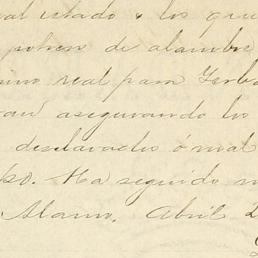 mal estado y los que
ponen de alambre
mino real para Yerba
asegurando lo
desclavados ó mal
Ha seguido
Alamo. Abril 2